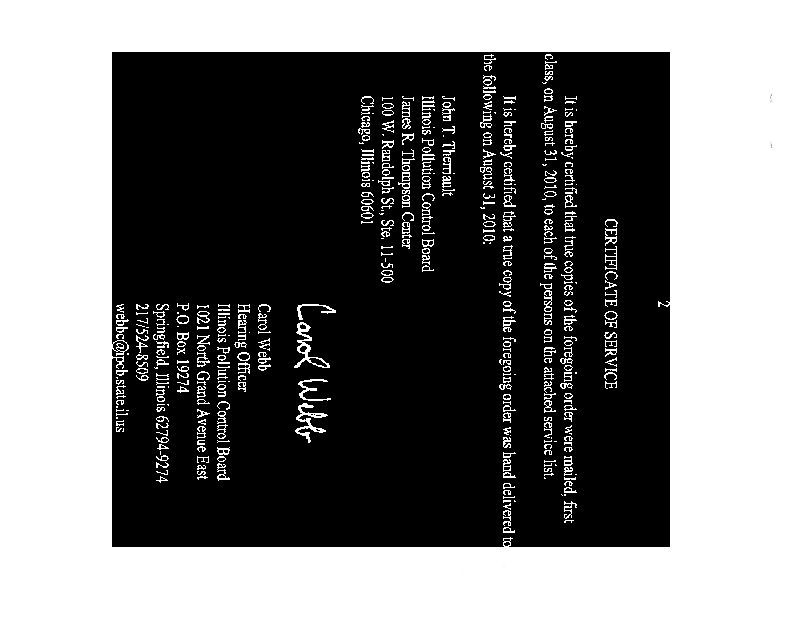 2
CERTIFICATE OF SERVICE
It is hereby certified that true copies of the foregoing order were mailed, first
class, on August 31, 2010, to each of the persons on the attached service list.
It is hereby certified that a true copy of the foregoing order was hand delivered to
the following on August 31, 2010:
John T. Therriault
Illinois Pollution Control Board
James R. Thompson Center
100 W. Randolph St., Ste. 11-500
Chicago, Illinois 60601
Carol Webb
Carol Webb
Hearing Officer
Illinois Pollution Control Board
1021 North Grand Avenue East
P.O. Box 19274
Springfield, Illinois 62794-9274
217/524-8509
webbc@ipcb.state.il.us